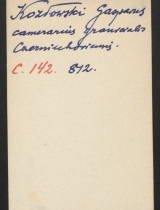 Kozłowski Gasparus
camerarius granicialis
Czerniechoviensis.
C. 142. 812.